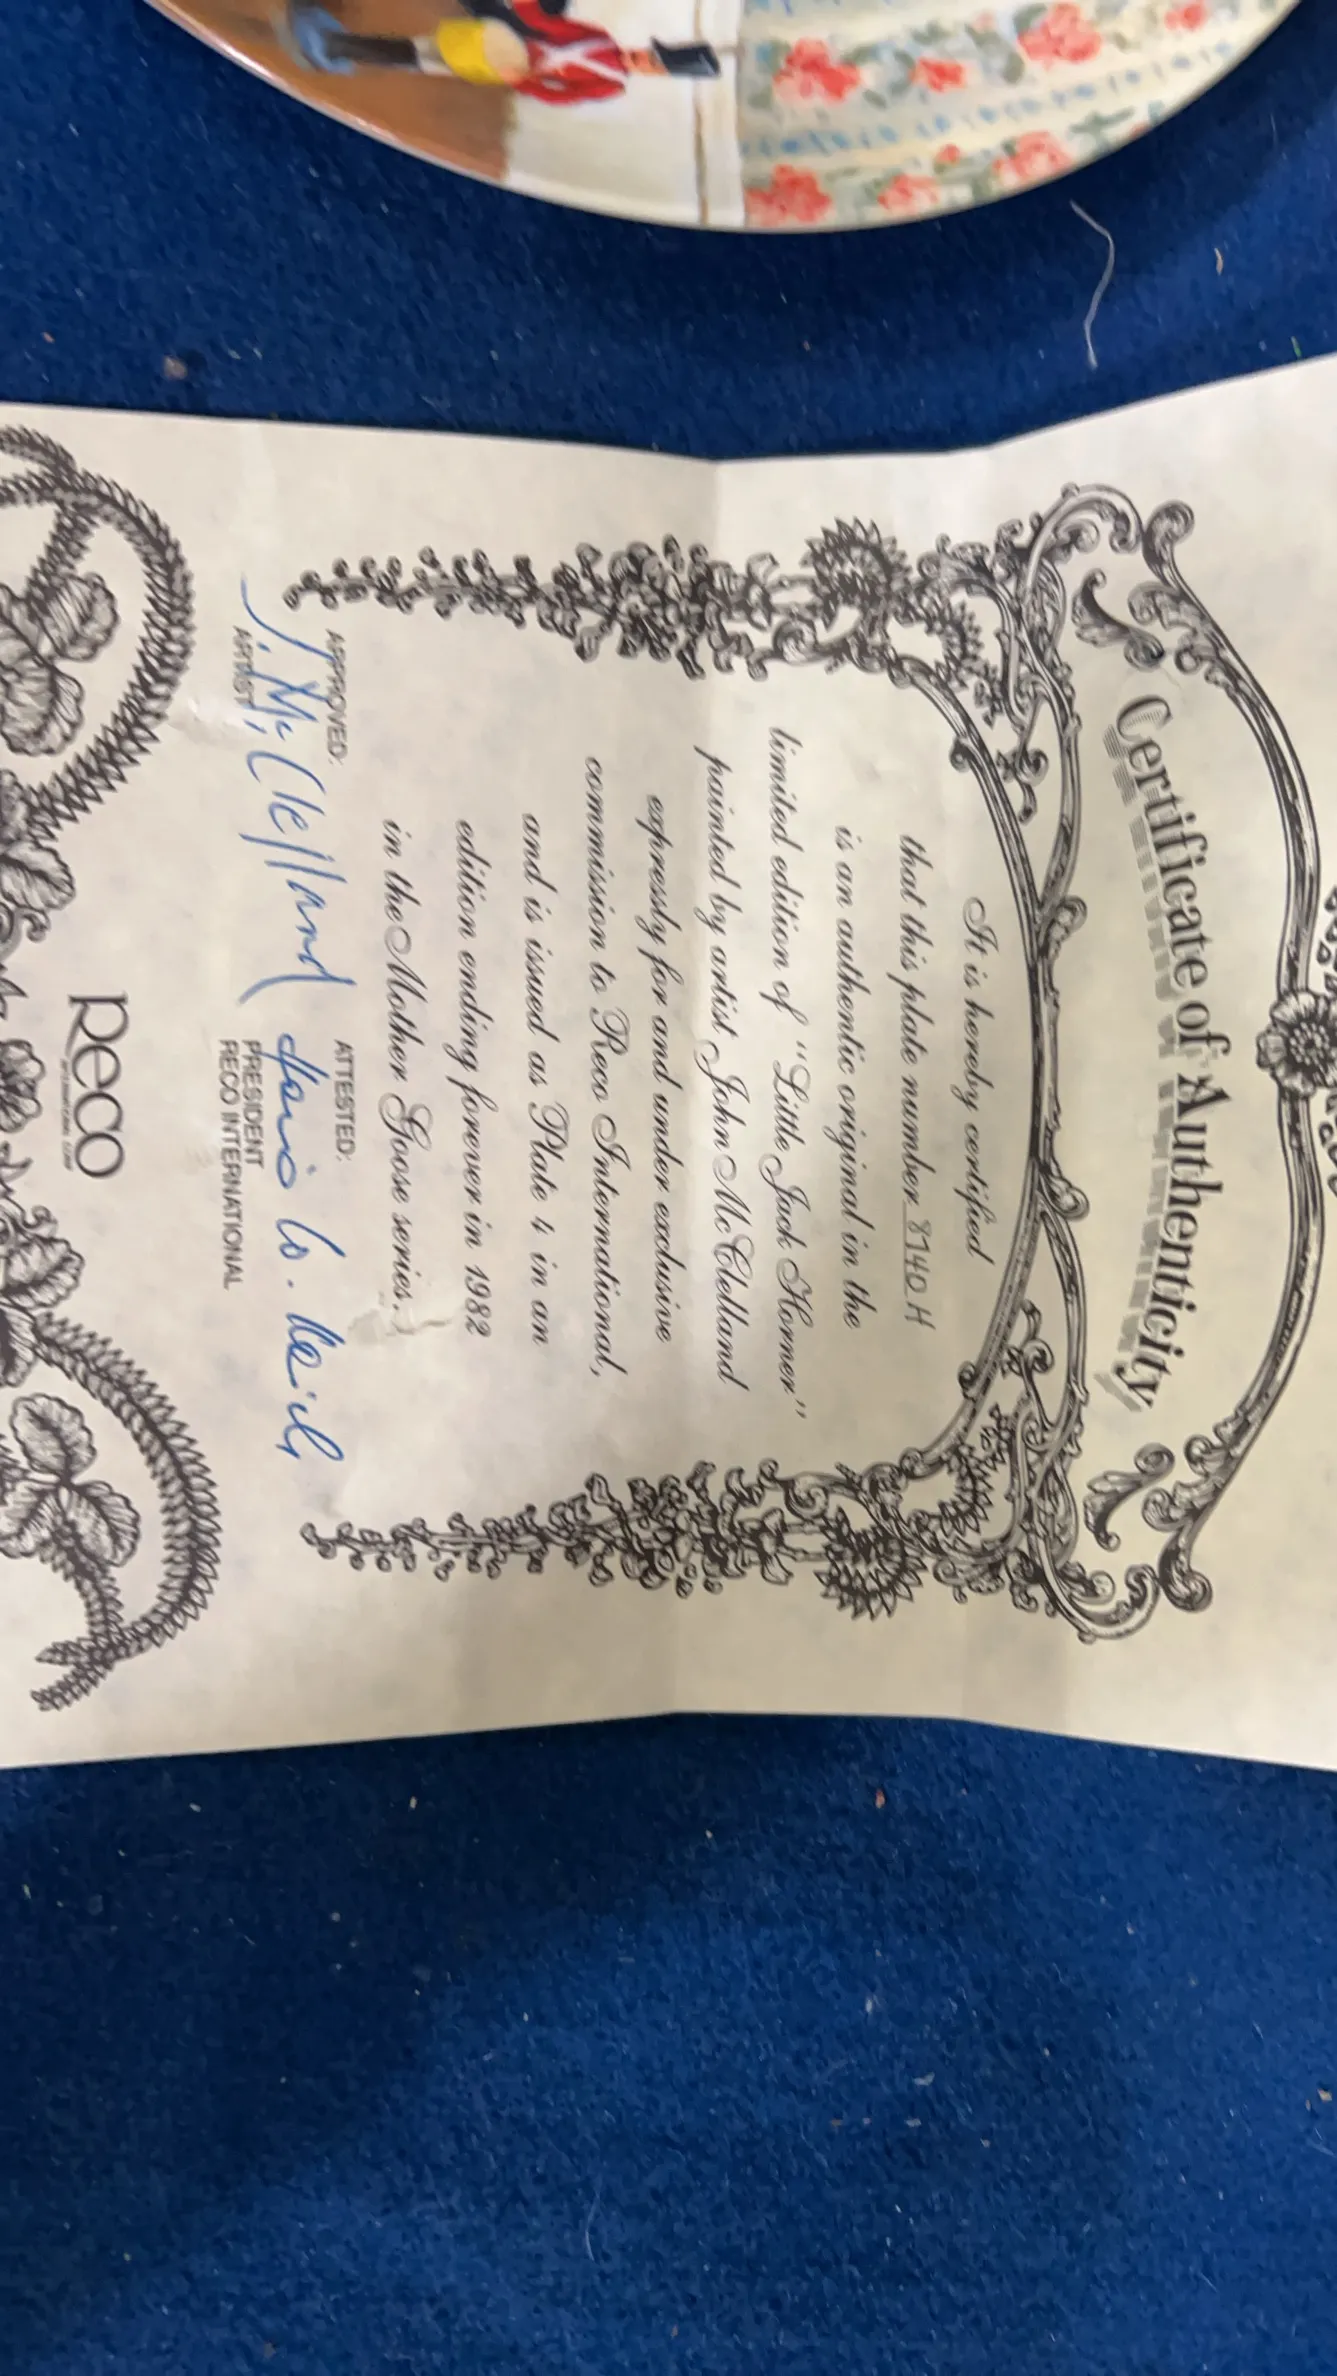 Certificate of Authenticity
It is hereby certified
that this plate number 8740 H
is an authentic original in the
limited edition of "Little Jack Horner"
painted by artist John McClelland
expressly for and under exclusive
commission to Reco International,
and is issued as Plate 4 in an
edition ending forever in 1982
in the Mother Goose series.
APPROVED:
J. McClelland
ARTIST
ATTESTED:
PRESIDENT
RECO INTERNATIONAL
Reco